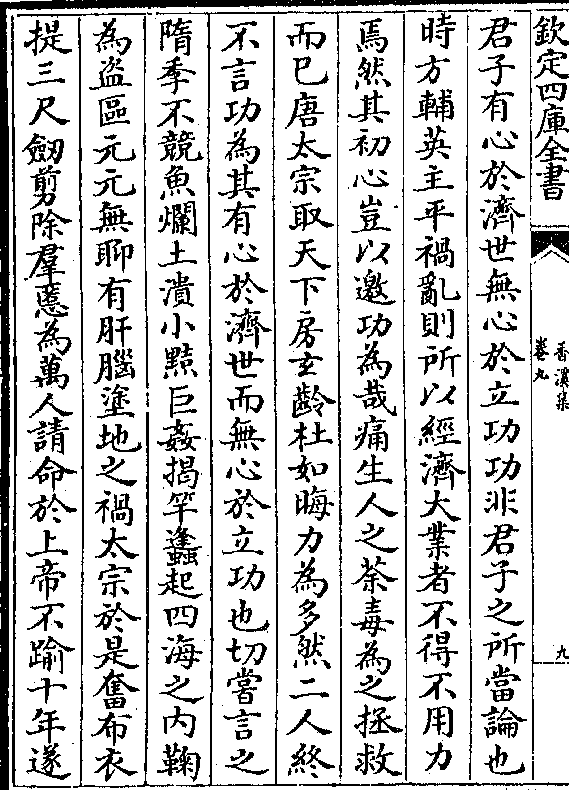 欽定四庫全書
香溪集
卷九
九
君子有心於濟世無心於立功功非君子之所當論也
時方輔英主平禍亂則所以經濟大業者不得不用力
焉然其初心豈以邀功為哉痛生人之荼毒為之拯救
而已唐太宗取天下房玄齡杜如晦力為多然二人終
不言功為其有心於濟世而無心於立功也切嘗言之
隋季不競魚爛土潰小黠巨姦揭竿蠭起四海之内鞠
為盗區元元無聊有肝腦塗地之禍太宗於是奮布衣
提三尺劒剪除羣慝為萬人請命於上帝不踰十年遂